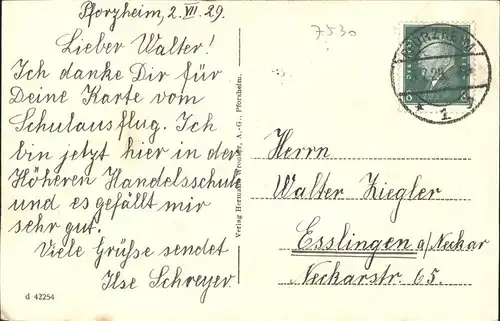 Pforzheim, 2.VII.29.
Lieber Walter!
Ich danke Dir für
Deine Karte vom
Schulausflug. Ich
bin jetzt hier in der
Höheren Handelsschule
und es gefällt mir
sehr gut.
Viele Grüße sendet
Ilse Schreyer
d 42254
Verlag Hermann A.-G., Pforzheim.
7530
PFORZHEIM
1
Herrn
Walter Ziegler
Esslingen a/Neckar
Neckarstr. 65.